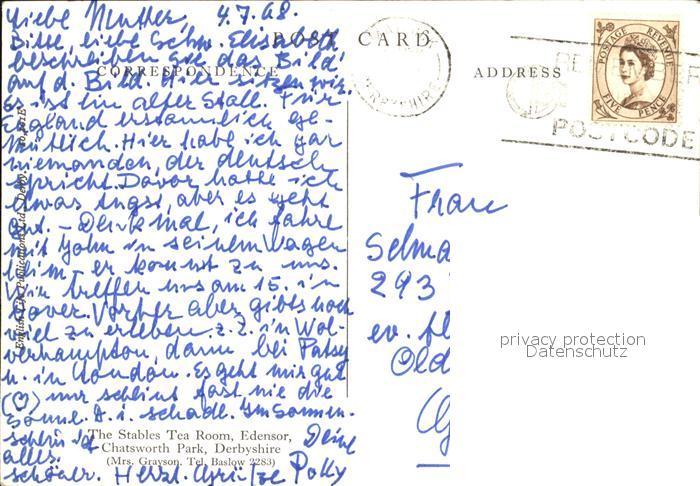 Liebe Mutter, 4.7.68.
Bitte, liebe Schw. Elisabeth
beschreiben Sie das Bild
auf d. Bild. Hier sitzen wir.
Es ist ein alter Stall. Für
England erstaunlich ge-
mütlich. Hier habe ich gar
niemanden, der deutsch
spricht. Davor hatte ich
etwas Angst, aber es geht
gut. – Denk mal, ich fahre
mit John in seinem Wagen
heim – er kommt zu uns.
Wir treffen uns am 15. in
Dover. Vorher aber gibts noch
viel zu erleben. z.Z. in Wol-
verhampton, dann bei Patsy
u. in London. Es geht mir gut
(♡) nur scheint fast nie die
Sonne. D. i. schade. Im Sonnen-
schein ist
alles
schöner. Herzl. Grüße
Deine
Polly
POST CARD
CORRESPONDENCE
ADDRESS
English Life Publications Ltd., Derby.
The Stables Tea Room, Edensor,
Chatsworth Park, Derbyshire
(Mrs. Grayson. Tel. Baslow 2283)
DERBYSHIRE
POSTAGE REVENUE
FIVE PENCE
POSTCODE
Frau
Selma
293
ev.
Old
privacy protection
Datenschutz